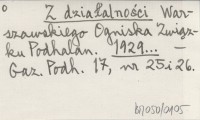 Z działalności War-
szawskiego Ogniska Związ-
ku Podhalan. 1929... —
Gaz. Podh. 17, nr 25 i 26.